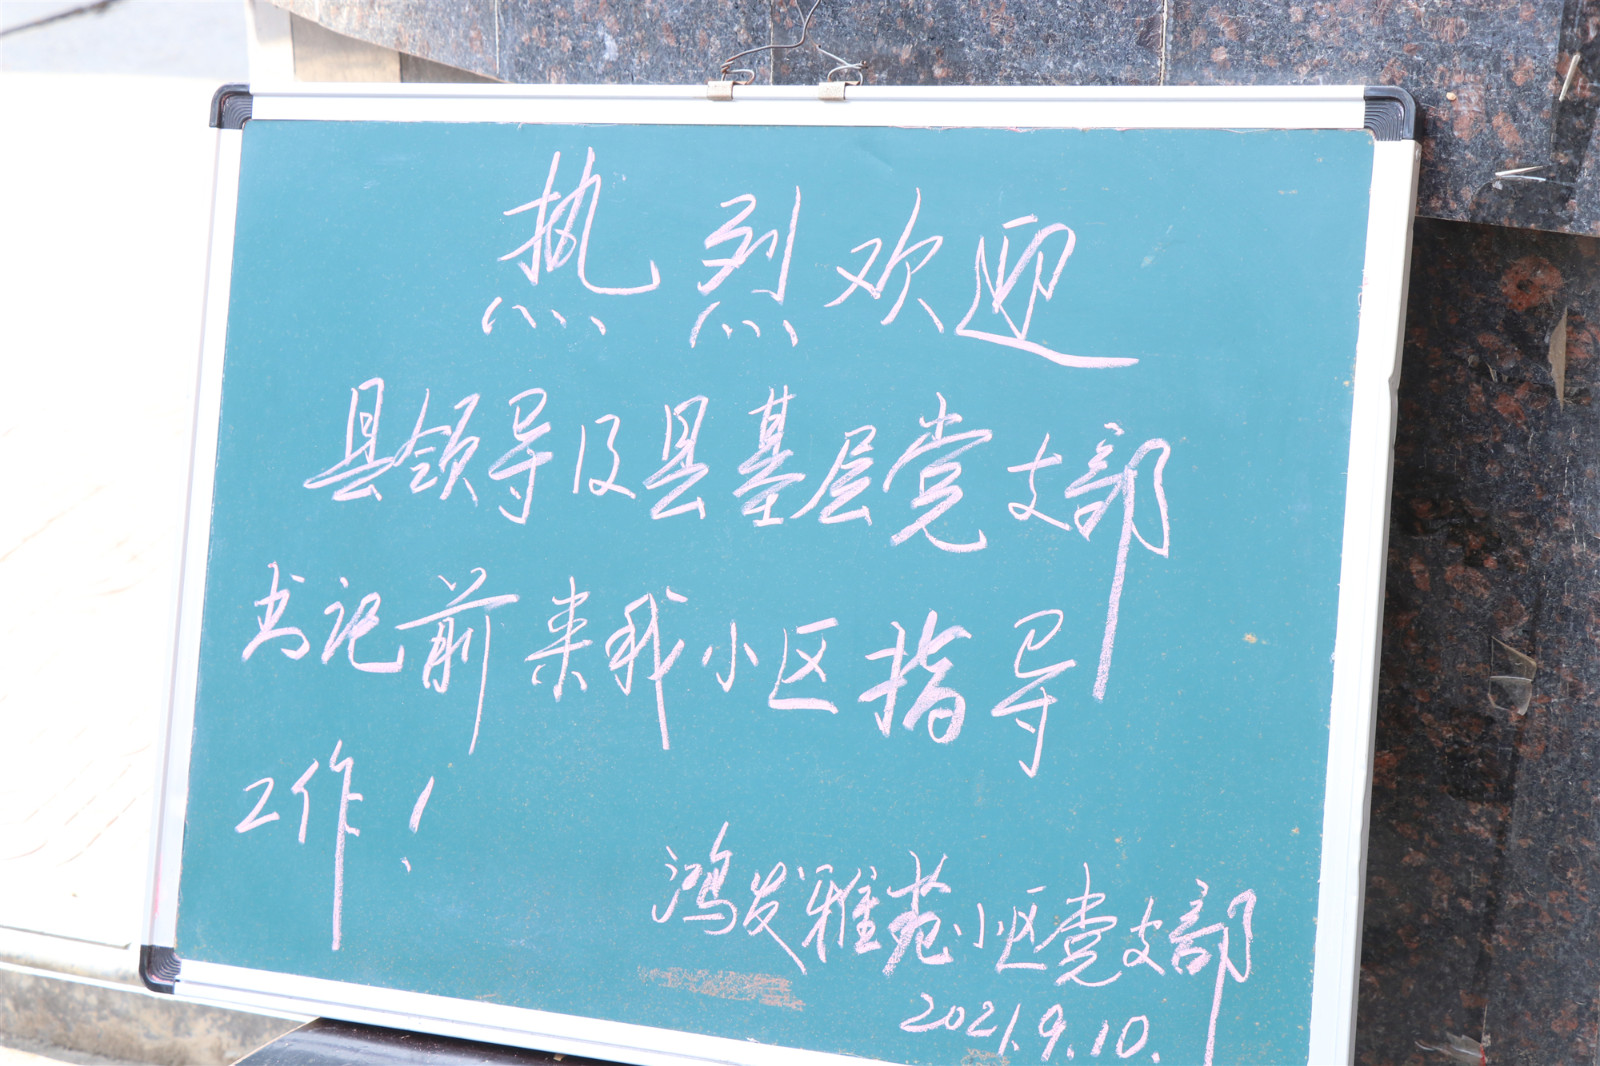 热烈欢迎
县领导及县基层党支部
书记前来我小区指导
工作！
鸿发雅苑小区党支部
2021.9.10.